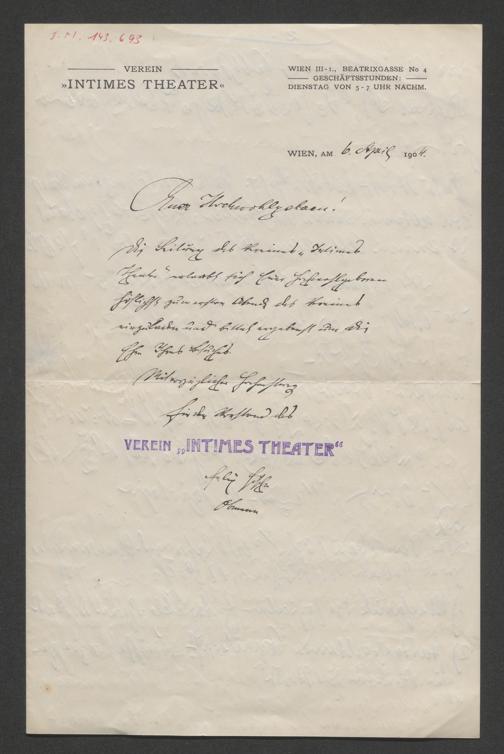 J. N. 143.693
VEREIN
»INTIMES THEATER«
WIEN III-1., BEATRIXGASSE No 4
GESCHÄFTSSTUNDEN:
DIENSTAG VON 5-7 UHR NACHM.
WIEN, AM 6. April 1904.
Euer Hochwohlgeboren!
Die Leitung des Vereines „Intimes
Theater" erlaubt sich Euer Hochwohlgeboren
höflichst zum ersten Abend des Vereines
einzuladen und bittet ergebenst um die
Ehre Ihres Besuches.
Mit vorzüglicher Hochachtung
Für den Vorstand des
VEREIN „INTIMES THEATER"
Obmann